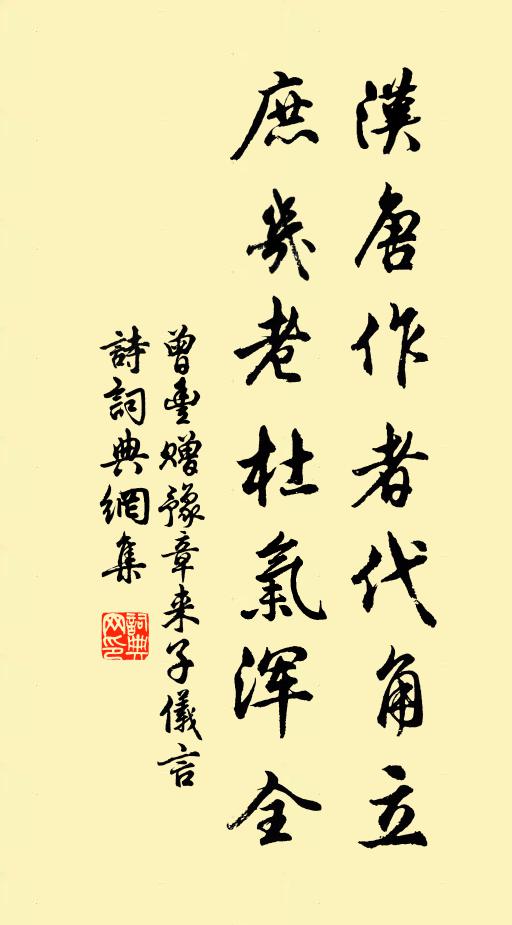 漢唐作者代角立
庶幾老杜氣渾全
曾豐贈豫章来子儀言
詩詞典網集
詞典网印